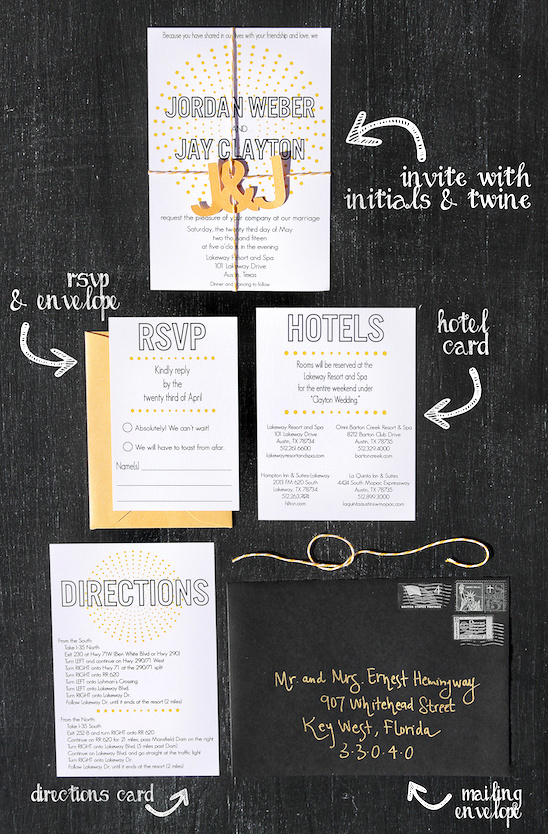 Because you have shared in our lives with your friendship and love, we
JORDAN WEBER
AND
JAY CLAYTON
J&J
request the pleasure of your company at our marriage
Saturday, the twenty third of May
two thousand fifteen
at five o'clock in the evening
Lakeway Resort and Spa
101 Lakeway Drive
Austin, Texas
Dinner and dancing to follow
invite with
initials & twine
rsvp
& envelope
RSVP
Kindly reply
by the
twenty third of April
Absolutely! We can't wait!
We will have to toast from afar.
Name(s)
HOTELS
Rooms will be reserved at the
Lakeway Resort and Spa
for the entire weekend under
"Clayton Wedding."
Lakeway Resort and Spa
101 Lakeway Drive
Austin, TX 78734
512.261.6600
lakewayresortandspa.com
Omni Barton Creek Resort & Spa
8212 Barton Club Drive
Austin, TX 78735
512.329.4000
bartoncreek.com
Hampton Inn & Suites-Lakeway
2013 FM 620 South
Lakeway, TX 78734
512.263.7474
hilton.com
La Quinta Inn & Suites
4424 South Mopac Expressway
Austin, TX 78735
512.899.3000
laquintaaustinswmopac.com
hotel
card
DIRECTIONS
From the South:
Take I-35 North
Exit 230 at Hwy 71W (Ben White Blvd or Hwy 290)
Turn LEFT and continue on Hwy 290/71 West
Turn RIGHT onto Hwy 71 at the 290/71 split
Turn RIGHT onto RR 620
Turn LEFT onto Lohman's Crossing
Turn LEFT onto Lakeway Blvd.
Turn RIGHT onto Lakeway Dr.
Follow Lakeway Dr. until it ends at the resort (2 miles)
From the North:
Take I-35 South
Exit 252-B and turn RIGHT onto RR 620
Continue on RR 620 for 21 miles, pass Mansfield Dam on the right
Turn RIGHT onto Lakeway Blvd. (5 miles past Dam)
Continue on Lakeway Blvd. and go straight at the traffic light
Turn RIGHT onto Lakeway Dr.
Follow Lakeway Dr. until it ends at the resort (2 miles)
directions card
Mr. and Mrs. Ernest Hemingway
907 Whitehead Street
Key West, Florida
3·3·0·4·0
mailing
envelope